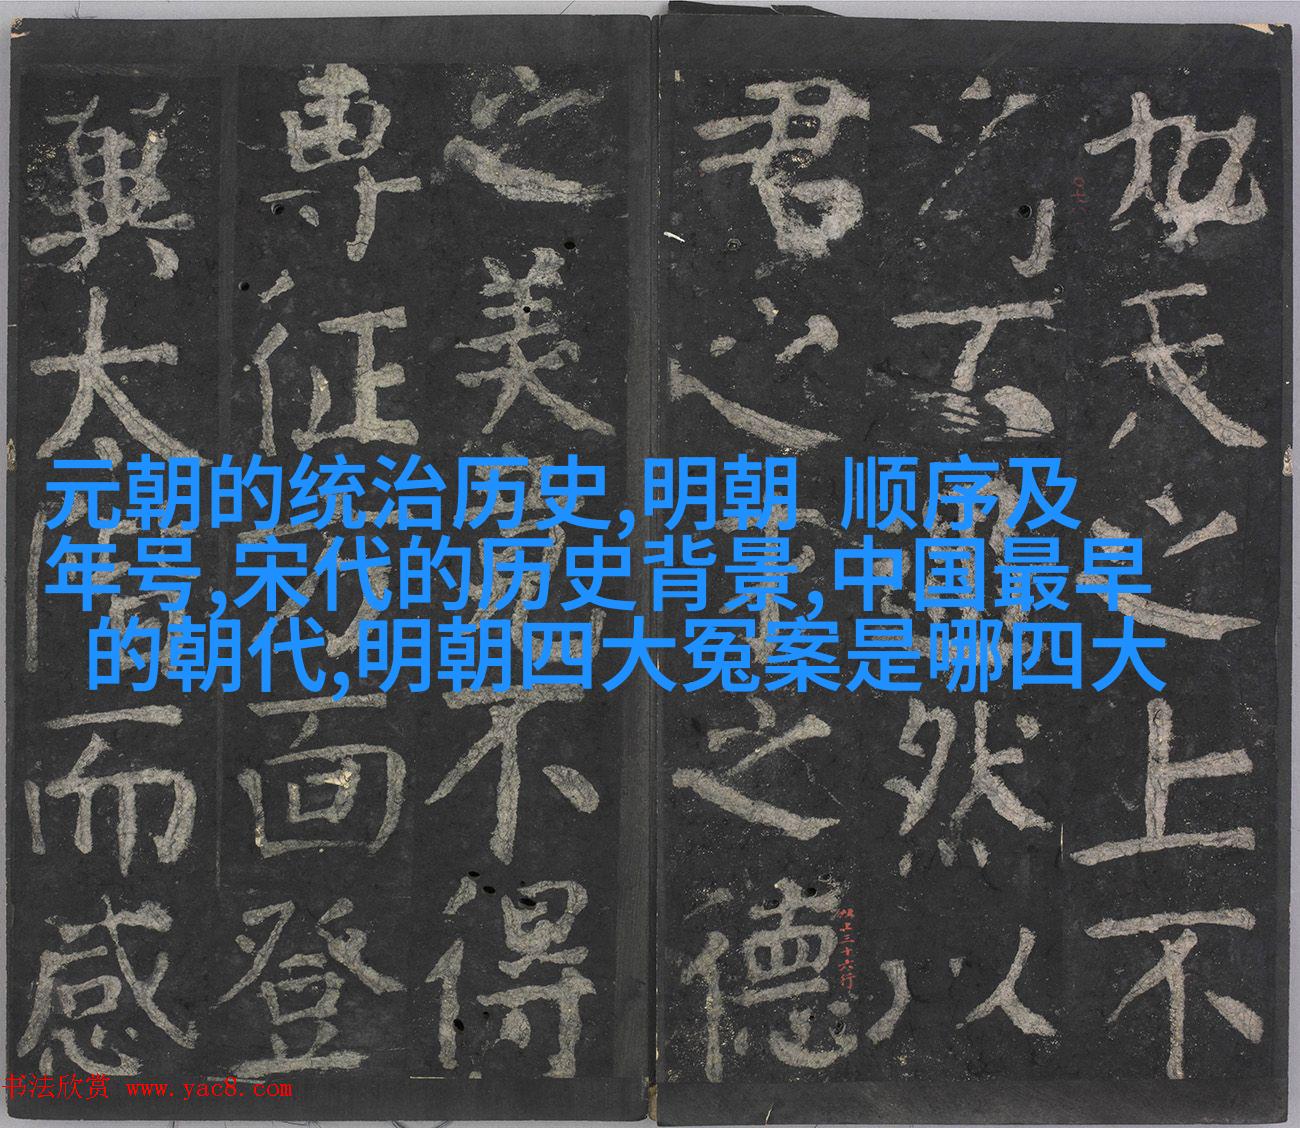 元朝的统治历史,明朝 顺序及
年号,宋代的历史背景,中国最早
的朝代,明朝四大冤案是哪四大
氏之上不
然以
君之之德
之美不得
專征面登
太階而感
三十六行
书法欣赏 www.yac8.com